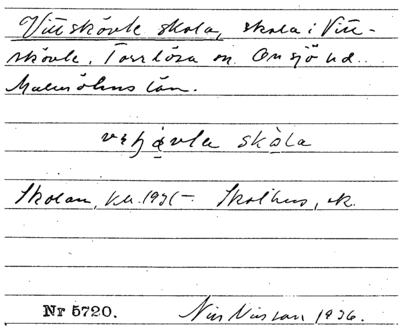 Vittskövle skola, skola i Vitt-
skövle, Torrlösa sn. Onsjö hd.
Malmöhus län.
skåla
Skolan, kn. 1935 Skolhus, ek.
Nr 5720. Nils Nilsson 1936.